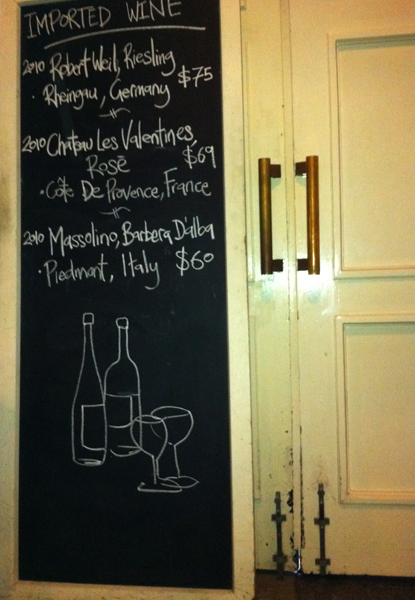 IMPORTED WINE
2010 Robert Weil, Riesling
• Rheingau, Germany $75
2010 Chateau Les Valentines,
Rosé $69
• Côte De Provence, France
2010 Massolino, Barbera D'alba
• Piedmont, Italy $60